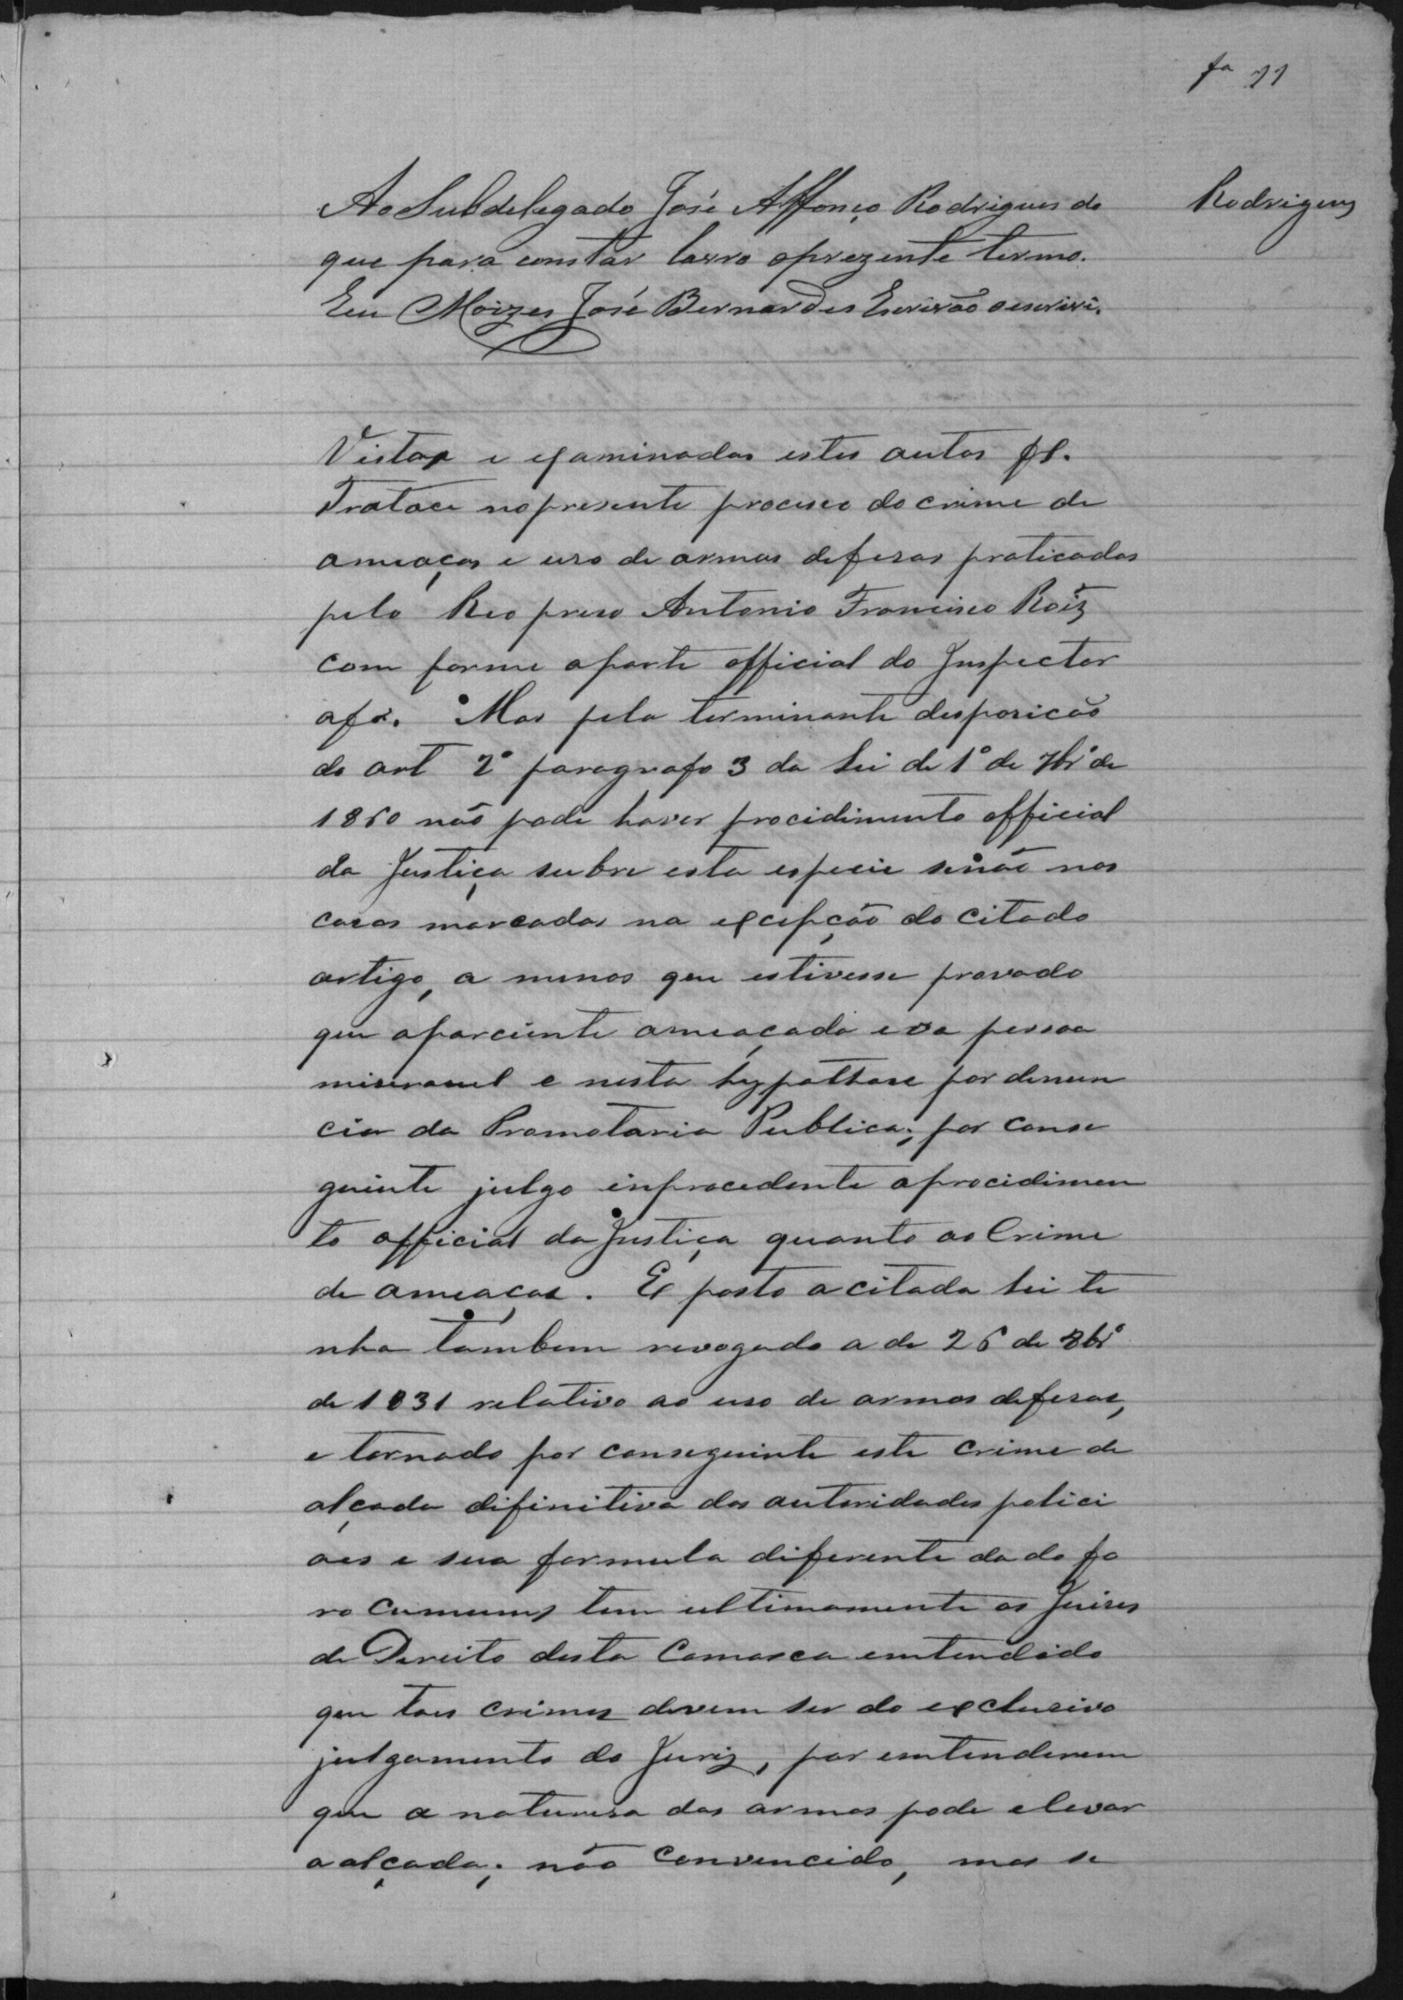 fa 11
Rodrigues
Ao Subdelegado José Affonço Rodrigues do
que para constar lavro oprezente termo.
Eu Moizes José Bernardes Escrivão o escrivi.
Vistos e examinados estes autos &.
Tratace no presente proceso do crime de
ameaças e uso de armas defesas praticados
pelo Reo preso Antonio Francisco Roiz
com forme a parte official do Inspector
af2. Mas pela terminante desposicão
do art 2º paragrafo 3 da Lei de 1º de 7brº de
1860 não pode haver procidimento official
da Justiça subre esta especie senão nos
casos marcados na excepção do citado
artigo, a menos que estivesse provado
que aparciente ameaçada era pessoa
miseravel e nesta hypothese por denun
cia da Promotaria Publica; por conse
guinte julgo inprocedente o procidimen
to official da Justiça quanto ao Crime
de ameaças. E posto a citada Lei te
nha tambem revogado a de 26 de 8brº
de 1831 relativo ao uso de armas defesas,
e tornado por conseguinte este crime da
alçada difinitiva das autoridades polici
aes e sua formula diferente da do fo
ro cumum, tem ultimamente os Juises
de Dereito desta Comarca emtendido
que taes crimes devem ser do exclusivo
julgamento do Juriz, por emtenderem
que a naturesa das armas pode elevar
a alçada; não Convencido, mas se